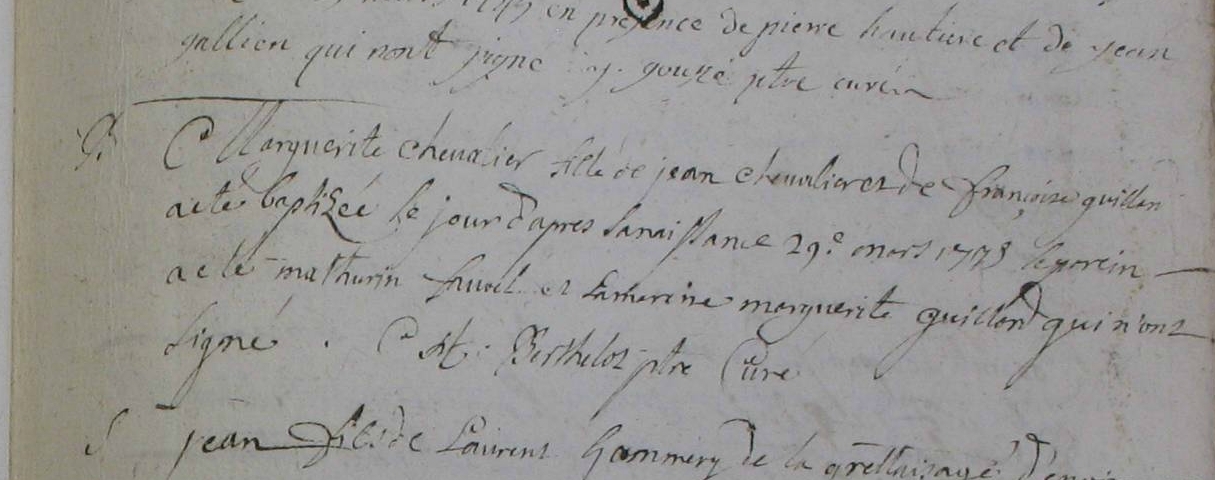 en presence de pierre hautiere et de jean
gallien qui nont signe y. gouzé ptre curé
B. Marguerite chevalier fille de jean chevalier et de françoise guillon
a eté baptizée le jour d'apres sa naissance 29e mars le parein
a eté mathurin et sa mereine marguerite guillon qui n'ont
signé. Berthelot ptre Curé
S jean fils de Laurent de la